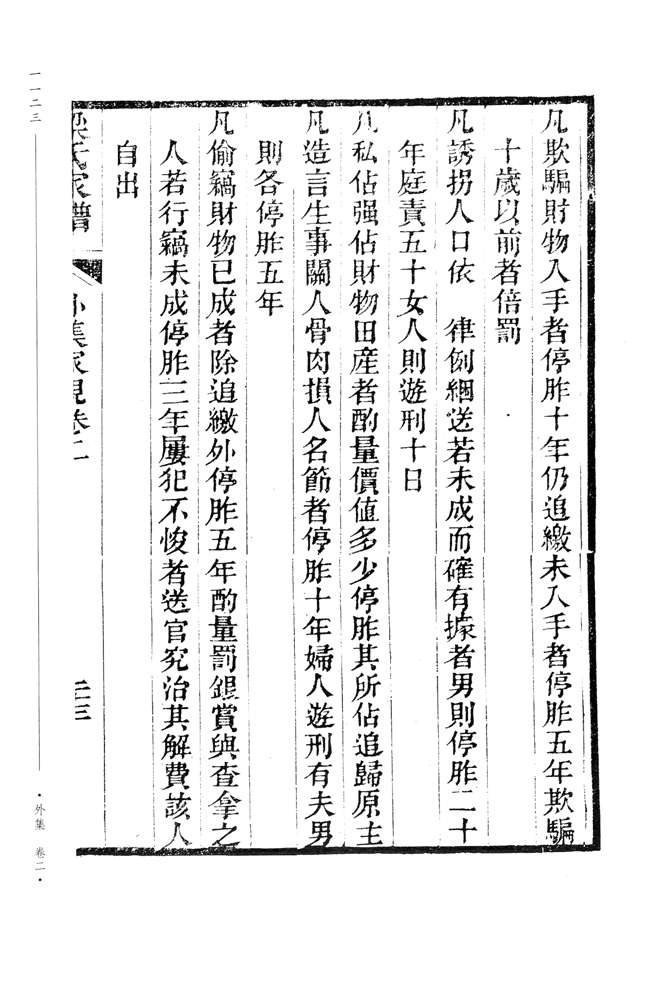 凡欺騙財物入手者停胙十年仍追繳未入手者停胙五年欺騙
十歲以前者倍罰
凡誘拐人口依 律例綑送若未成而確有據者男則停胙二十
年庭責五十女人則遊刑十日
凡私佔强佔財物田産者酌量價値多少停胙其所佔追歸原主
凡造言生事關人骨肉損人名節者停胙十年婦人遊刑有夫男
則各停胙五年
凡偷竊財物已成者除追繳外停胙五年酌量罰銀賞與查拿之
人若行竊未成停胙三年屢犯不悛者送官究治其解費該人
自出
梁氏家譜 外集家規卷二 二三
一一二三
·外集 卷二·